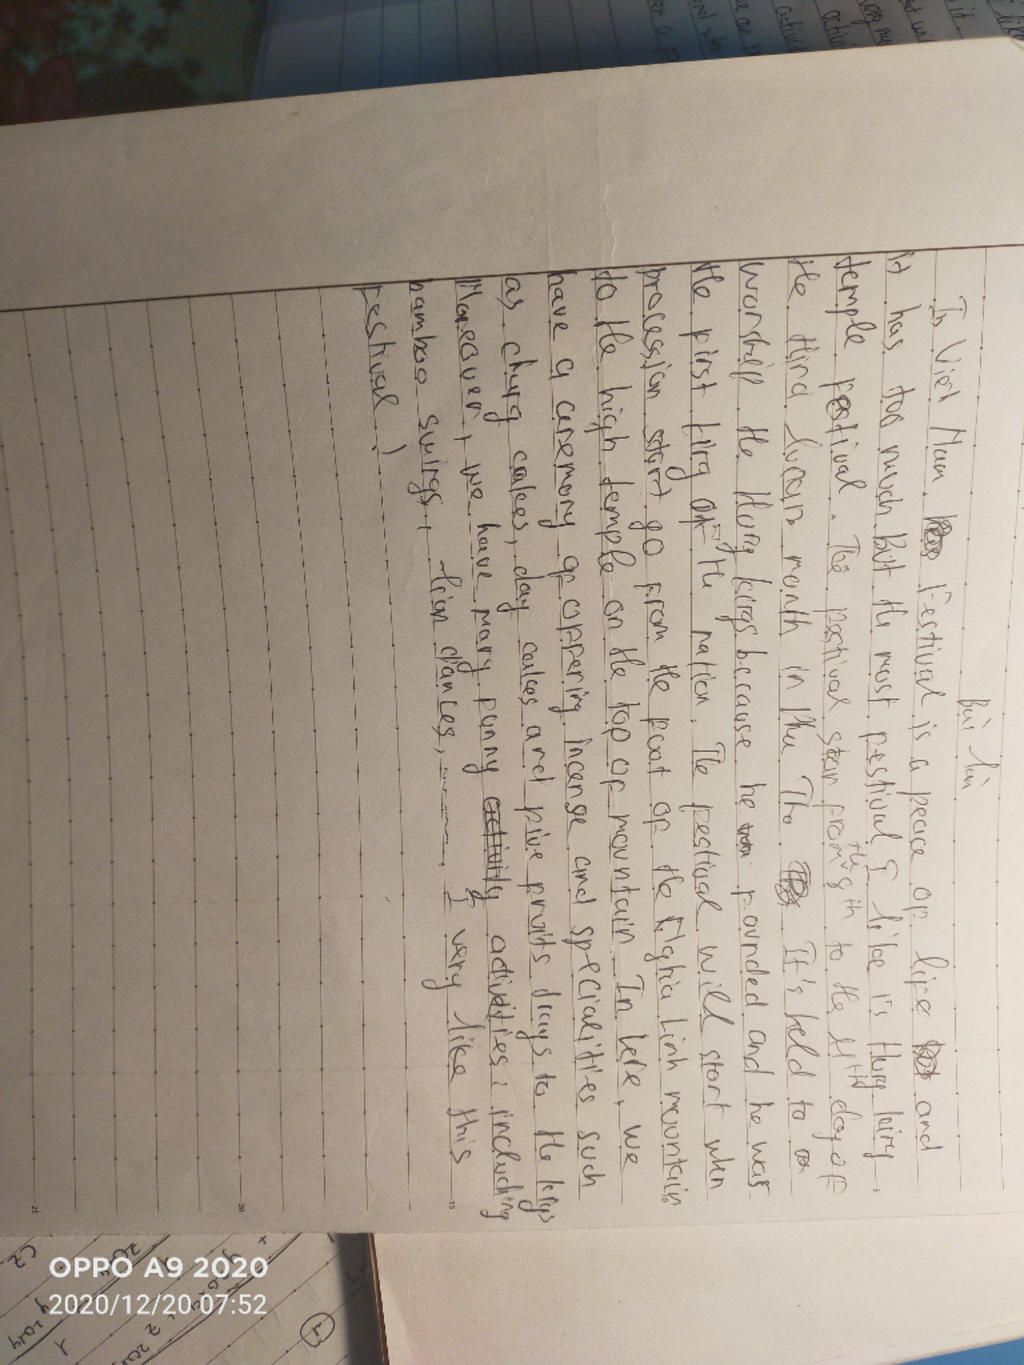 Bài làm
In Việt Nam, Festival is a peace op lipe and
it has too much. But the most pestival I like is Hung king
temple festival. The pestival star prom the 8th to the 11th day of
the third lunar month in Phu Tho. It's held to
worship the Hung kings because he pounded and he was
the pirst king of the nation. The pestival will start when
procession start go from the poot op the Nghia Linh mountain
to the high temple on the top op mountain. In here, we
have a ceremony op oppering incense and specialities such
as chung cakes, day cakes and pive pruits trays to the kings
Moreover, we have many punny activities: including
bamboo swings, lion dances,........ I very like this
festival!
15
20
25
OPPO A9 2020
2020/12/20 07:52